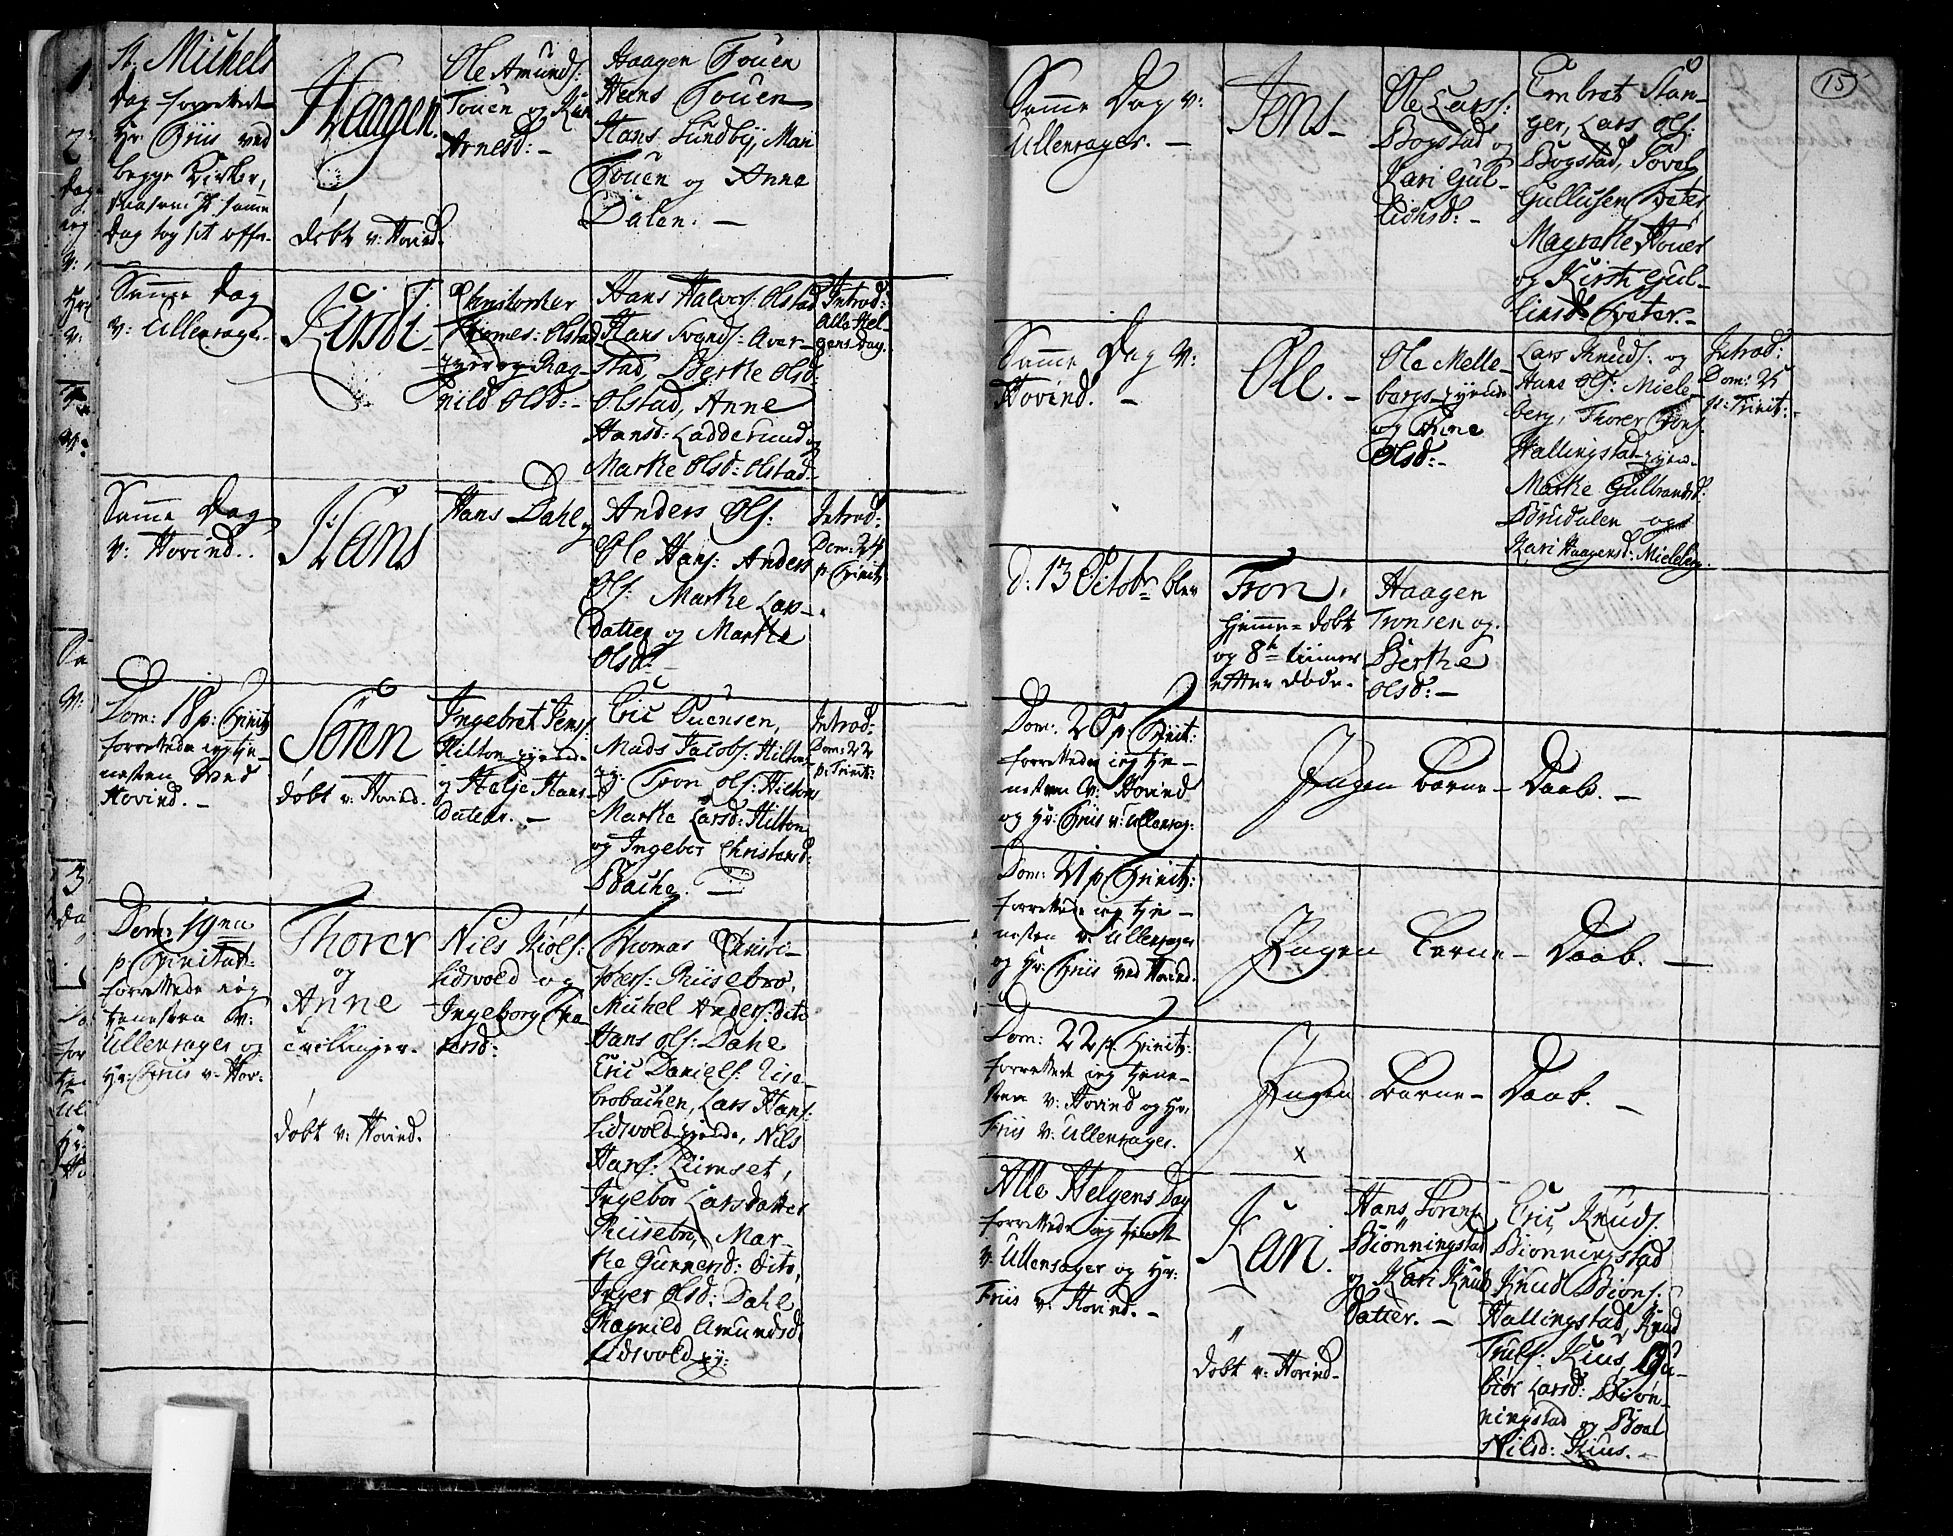 St. Michels
Dag forrettet
Hr Friis ved
begge Kirker,
saasom samme
Dag tog sit offer.
Haagen.
døbt v: Hovind.
Ole Amunds:
Touen og Kari
Arnesd: -
Haagen Touen
Hans Touen
Hans Lundby, Mari
Touen og Anne
Dalen. -
Samme Dag
v: Ullensager.
Kirsti -
Christopher
Thomes: Olstad
og Rag-
nild Olsd: -
Hans Halvors: Olstad
Hans Svends: Aver-
stad, Berthe Olsd:
Olstad, Anne
Hansd: Ladderud og
Marthe Olsd: Olstad -
Introd:
Alle Hel-
gens Dag.
Samme Dag
v: Hovind.
Hans
Hans Dahl og
Anders Ols:
Ole Hans: Anders
Ols: Marthe Lars-
Datter og Marthe
Olsd: -
Introd:
Dom: 24
p: Trinit:
Dom: 18 p: Trinit:
forrettede ieg tje-
nesten Ved
Hovind. -
Sören
døbt v: Hovind.
Ingebret Jens:
Hilton
og Helje Hans-
Datter. -
Eric Evensen,
Mads Jacobs: Hilton
Tron Ols: Hilton
Marthe Larsd: Hilton
og Ingebor Christensd:
Bache. -
Introd:
Dom: 22
p: Trinit:
Dom: 19na
p: Trinitat:
forrettede ieg
tienesten v:
Ullensager og
Hr: Friis v: Hov:
Thorer
og
Anne
Tvillinger.
døbt v: Hovind.
Nils Kiöls:
Lidsvold og
Ingeborg
Persd:
Thomas Christo-
phers: Riisebro,
Michel Anders: dito
Hans Ols: Dahl
Eric Daniels: Riise-
brobachen, Lars Hans:
Lidsvold, Nils
Hans: Kimset,
Ingebor Larsdatter
Riisebro, Mar-
the Gunnersd: dito,
Inger Olsd: Dahl
Ragnild Amundsd:
Lidsvold
15
Samme Dag v:
Ullensager. -
Jens -
Ole Lars:
Bogstad og
Kari Gul-
lichsd: -
Embret Stan-
ger, Lars Ols:
Bogstad,
Gullichsen
Magrethe
og Kirsti Gul-
lichsd:
Samme Dag v:
Hovind. -
Ole. -
Ole Melle-
bergs
og Anne
Olsd: -
Lars Knuds: og
Hans Ols: Miele-
berg, Thorer
Hallingstad
Marthe Gulbrandsd:
Brudalen og
Kari Haagensd: Mieleberg.
Introd:
Dom: 25
p: Trinit: -
d: 13 Octobr blev
Tron.
hjemme-døbt
og 8te timer
efter døde.
Haagen
Tronsen og
Berthe
Olsd: -
Dom: 20 p: Trinit:
forrettede ieg tje-
nesten v: Hovind
og Hr: Friis v: Ullensag:
Ingen Barne-Daab. -
Dom: 21 p: Trinit:
forrettede ieg tje-
nesten v: Ullensager
og Hr: Friis ved Hovind.
Ingen Barne-Daab. -
Dom: 22 p: Trinit:
forrettede ieg tjene-
sten v: Hovind og Hr:
Friis v: Ullensager.
Ingen Barne-Daab. -
x
Alle Helgens Dag
forrettede ieg tjenest
v: Ullensager og Hr:
Friis v: Hovind. -
Kari.
døbt v: Hovind.
Hans Sörens:
Biönningstad
og Kari Knuds
Datter. -
Eric Knuds:
Biönningstad
Knud Biöns:
Hallingstad, Knud
Truls: Kius, Gu-
biör Larsd: Biön-
ningstad og Boel
Nilsd: Kius. -